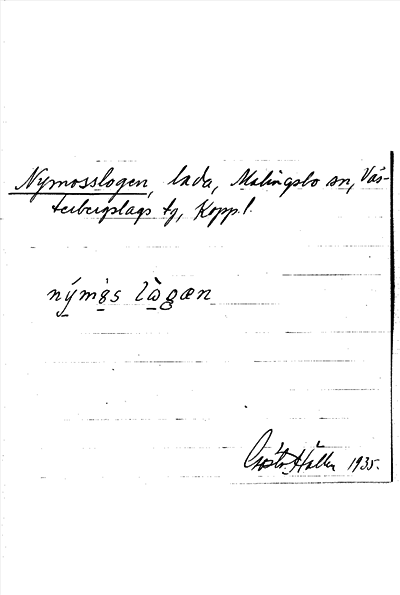 Nymosslogen, lada, Malingsbo sn, Väs-
terbergslags tg, Kopp.l.
nýmòs lògæn
Gösta Hallen 1935.